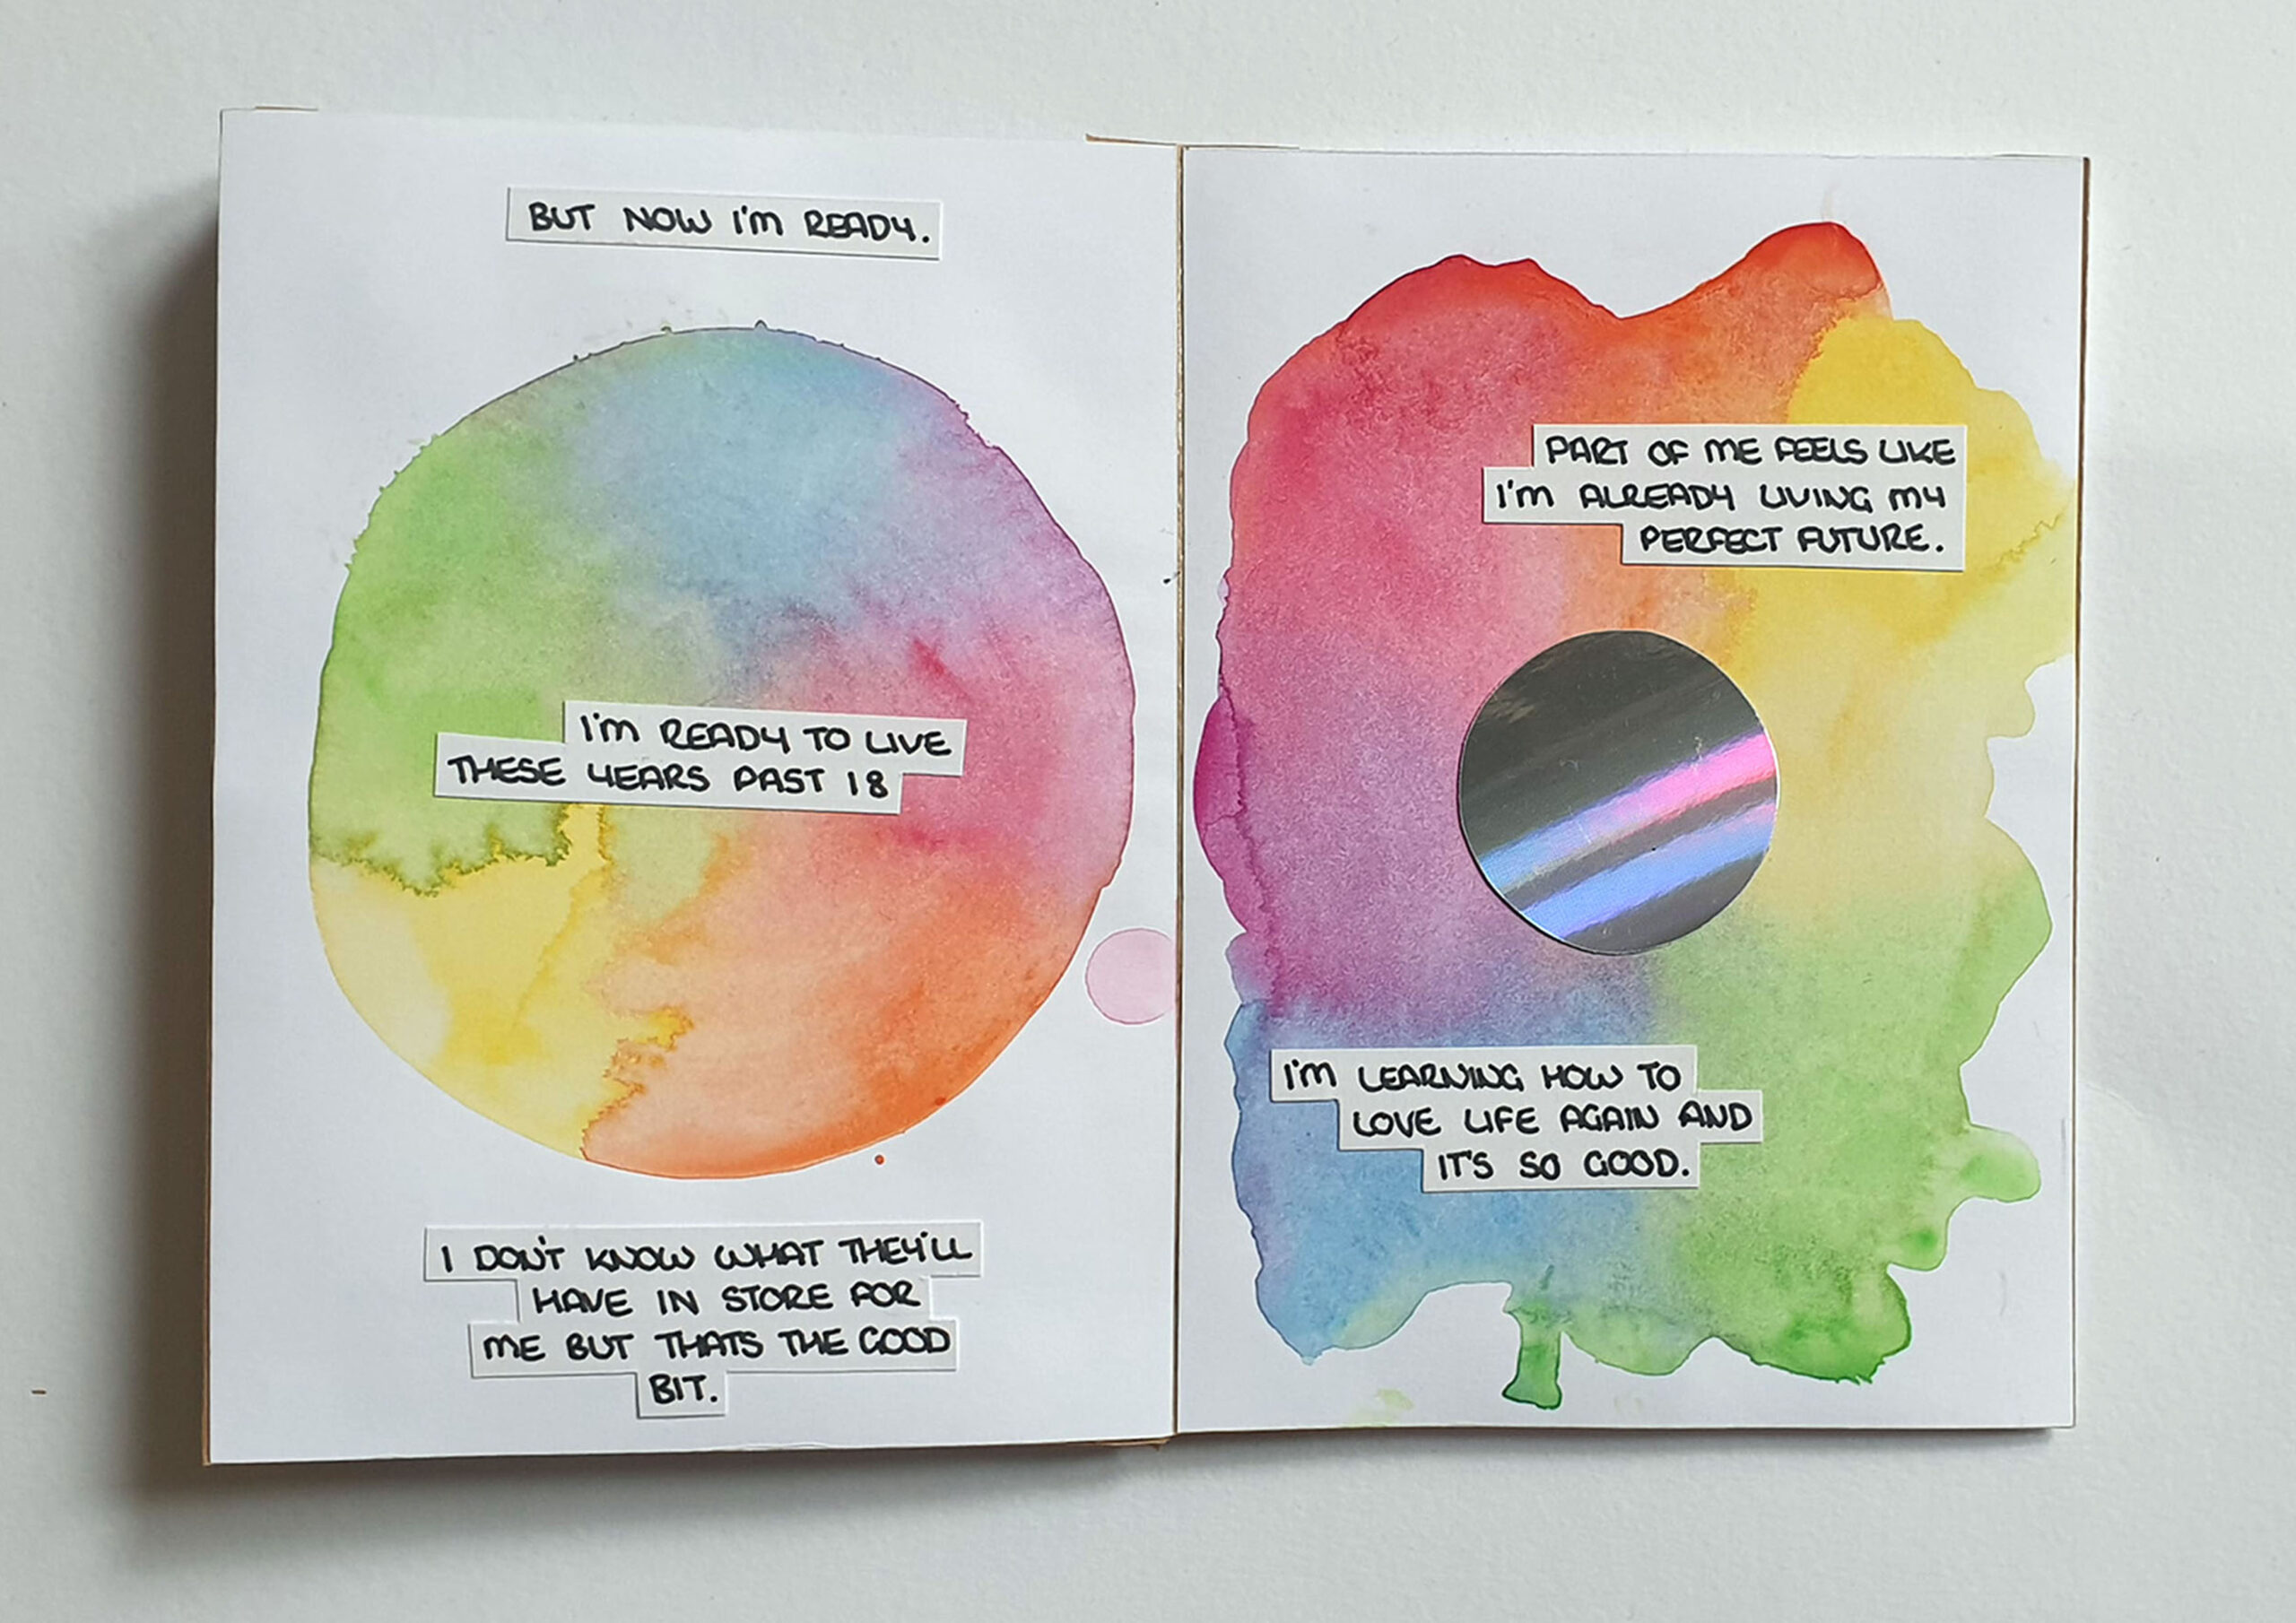 BUT NOW I'M READY.
I'M READY TO LIVE
THESE YEARS PAST 18
I DON'T KNOW WHAT THEY'LL
HAVE IN STORE FOR
ME BUT THATS THE GOOD
BIT.
PART OF ME FEELS LIKE
I'M ALREADY LIVING MY
PERFECT FUTURE.
I'M LEARNING HOW TO
LOVE LIFE AGAIN AND
IT'S SO GOOD.